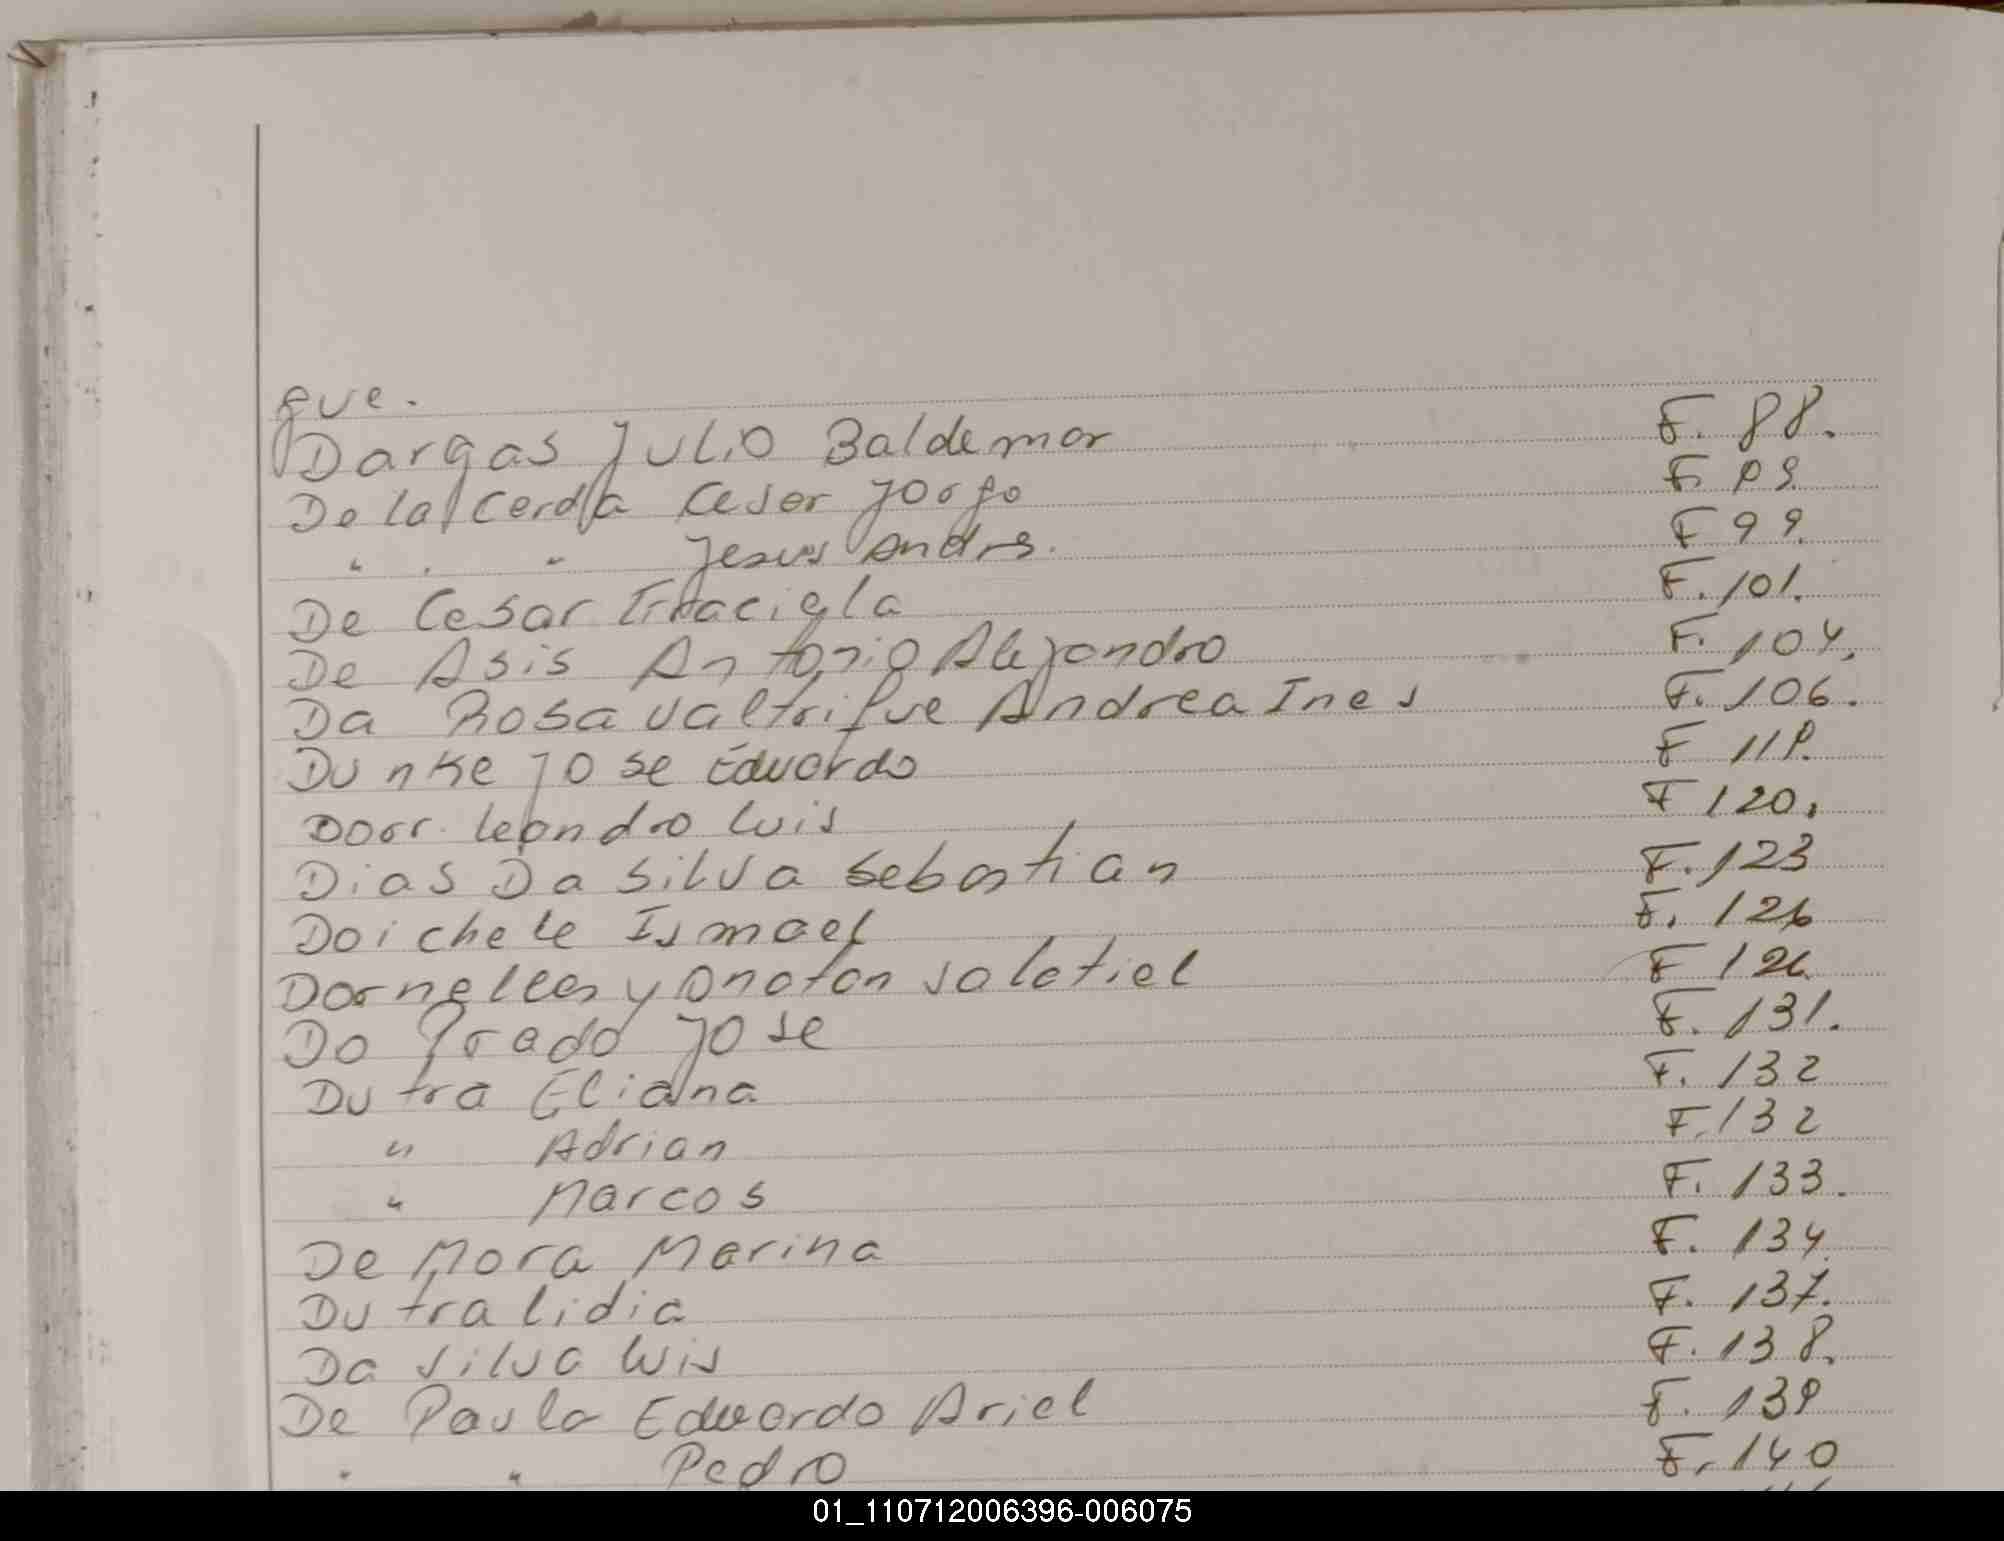 que.
Dargas Julio Baldemar F. 88.
De la Cerda Cesar Jorge F. 89.
" . " Jesus Andrs. F 99.
De Cesar Graciela F. 101.
De Asis Antonio Alejandro F. 104.
Da Rosa Valtrique Andrea Ines F. 106.
Dunke Jose Eduardo F 118.
Dorr. Leandro Luis F 120.
Dias Da Silva Sebastian F. 123
Doichele Ismael F. 126
Dornelles Yonatan Salatiel F 126
Do Prado Jose F. 131.
Dutra Eliana F. 132
" Adrian F. 132
" Marcos F. 133.
De Mora Marina F. 134.
Dutra Lidia F. 137.
Da Silva Luis F. 138.
De Paula Eduardo Ariel F. 139
. " Pedro F. 140
01_110712006396-006075